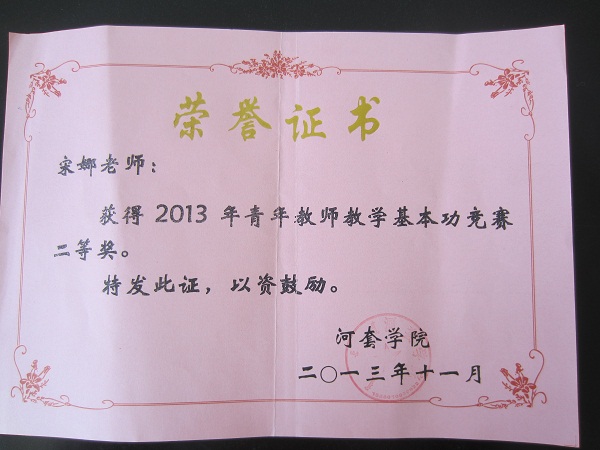 荣誉证书
宋娜老师：
获得 2013 年青年教师教学基本功竞赛
二等奖。
特发此证，以资鼓励。
河套学院
二〇一三年十一月